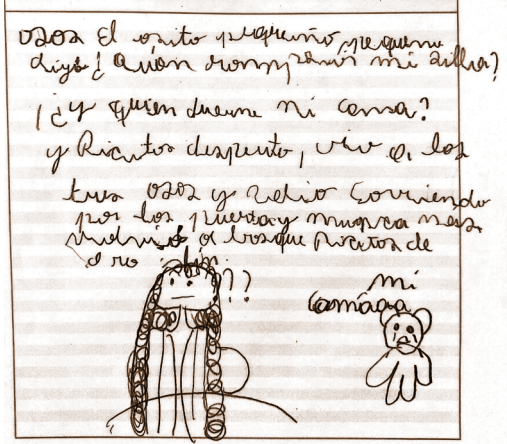 osos El osito pequeño, pequeño
diyo ¿Quién rompió mi silla?
¡¿y quien duerme mi cama?
y Ricitos desperto, vio a los
tres osos y salio corriendo
por los puerta y munca mas
volvió a bosque Ricitos de
oro
???
mi
camáaaa